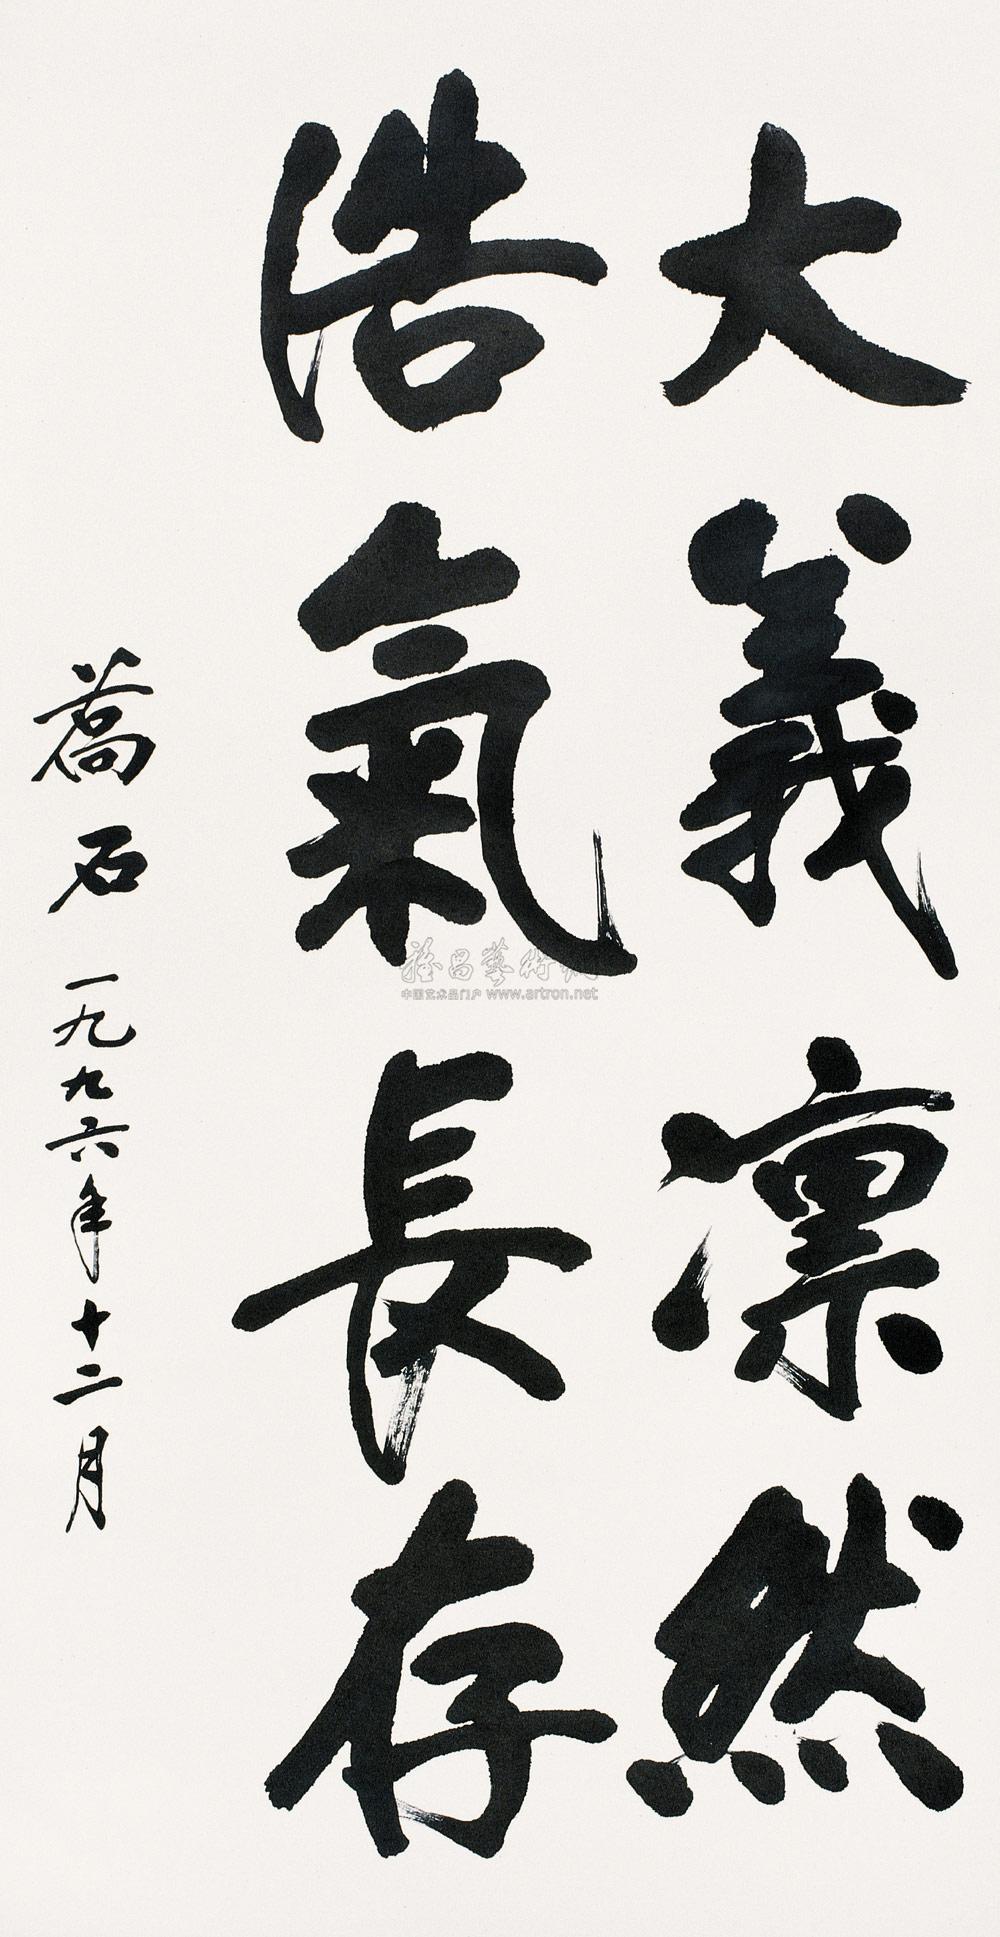 大義凛然
浩氣長存
喬石 一九九六年十二月
中国艺术品门户 www.artron.net